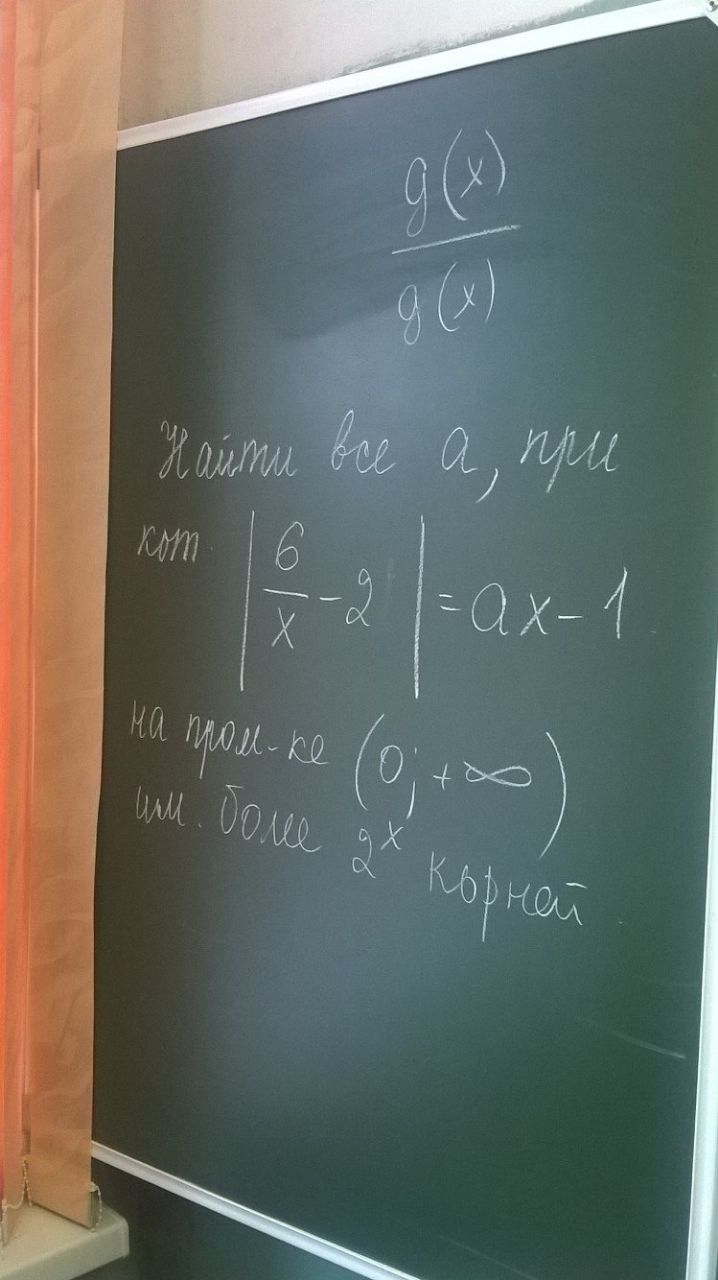 g(x)
g(x)
Найти все a, при
кот. |6/x - 2| = ax - 1
на пром-ке (0; +∞)
им. более 2х корней